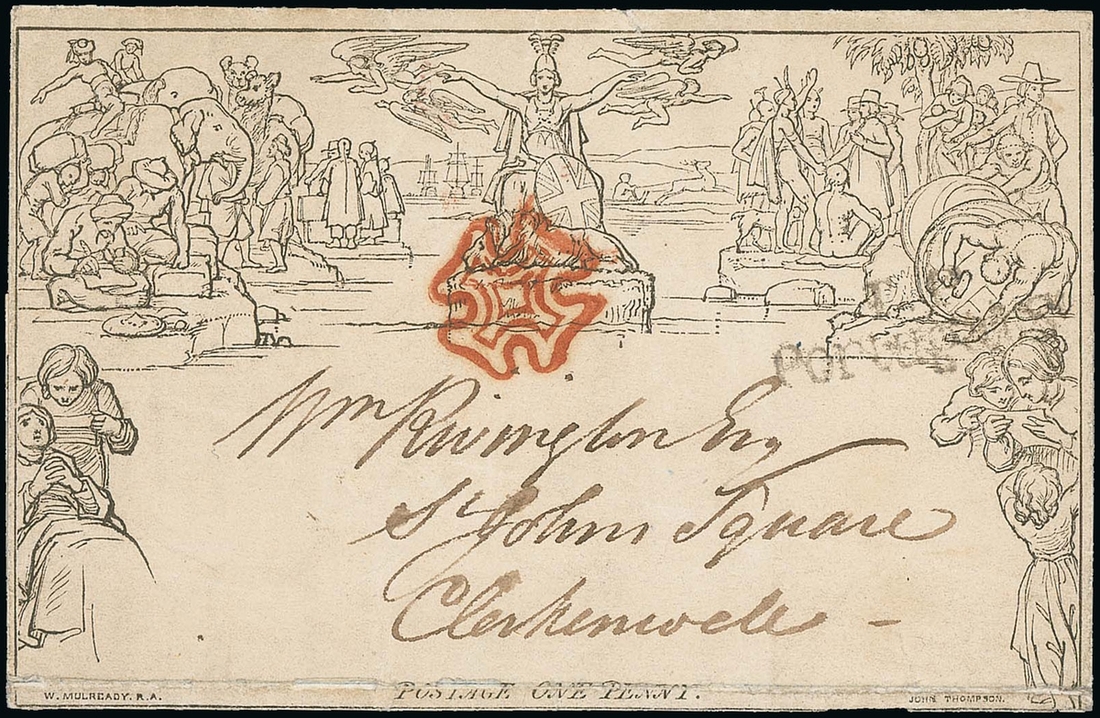 Wm Rivington Esq
St John Square
Clerkenwell
POSTAGE ONE PENNY.
W. MULREADY. R.A.
JOHN THOMPSON.